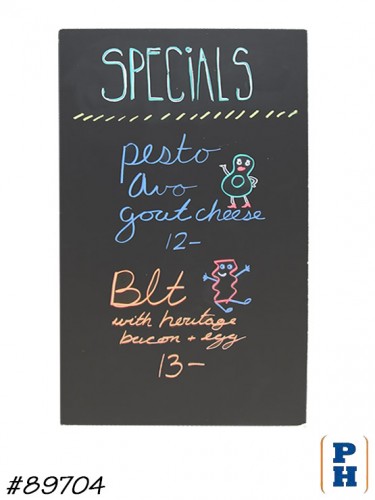 SPECiALS
pesto
avo
gout cheese
12-
Blt
with heritage
bacon + egg
13-
#89704
P
H